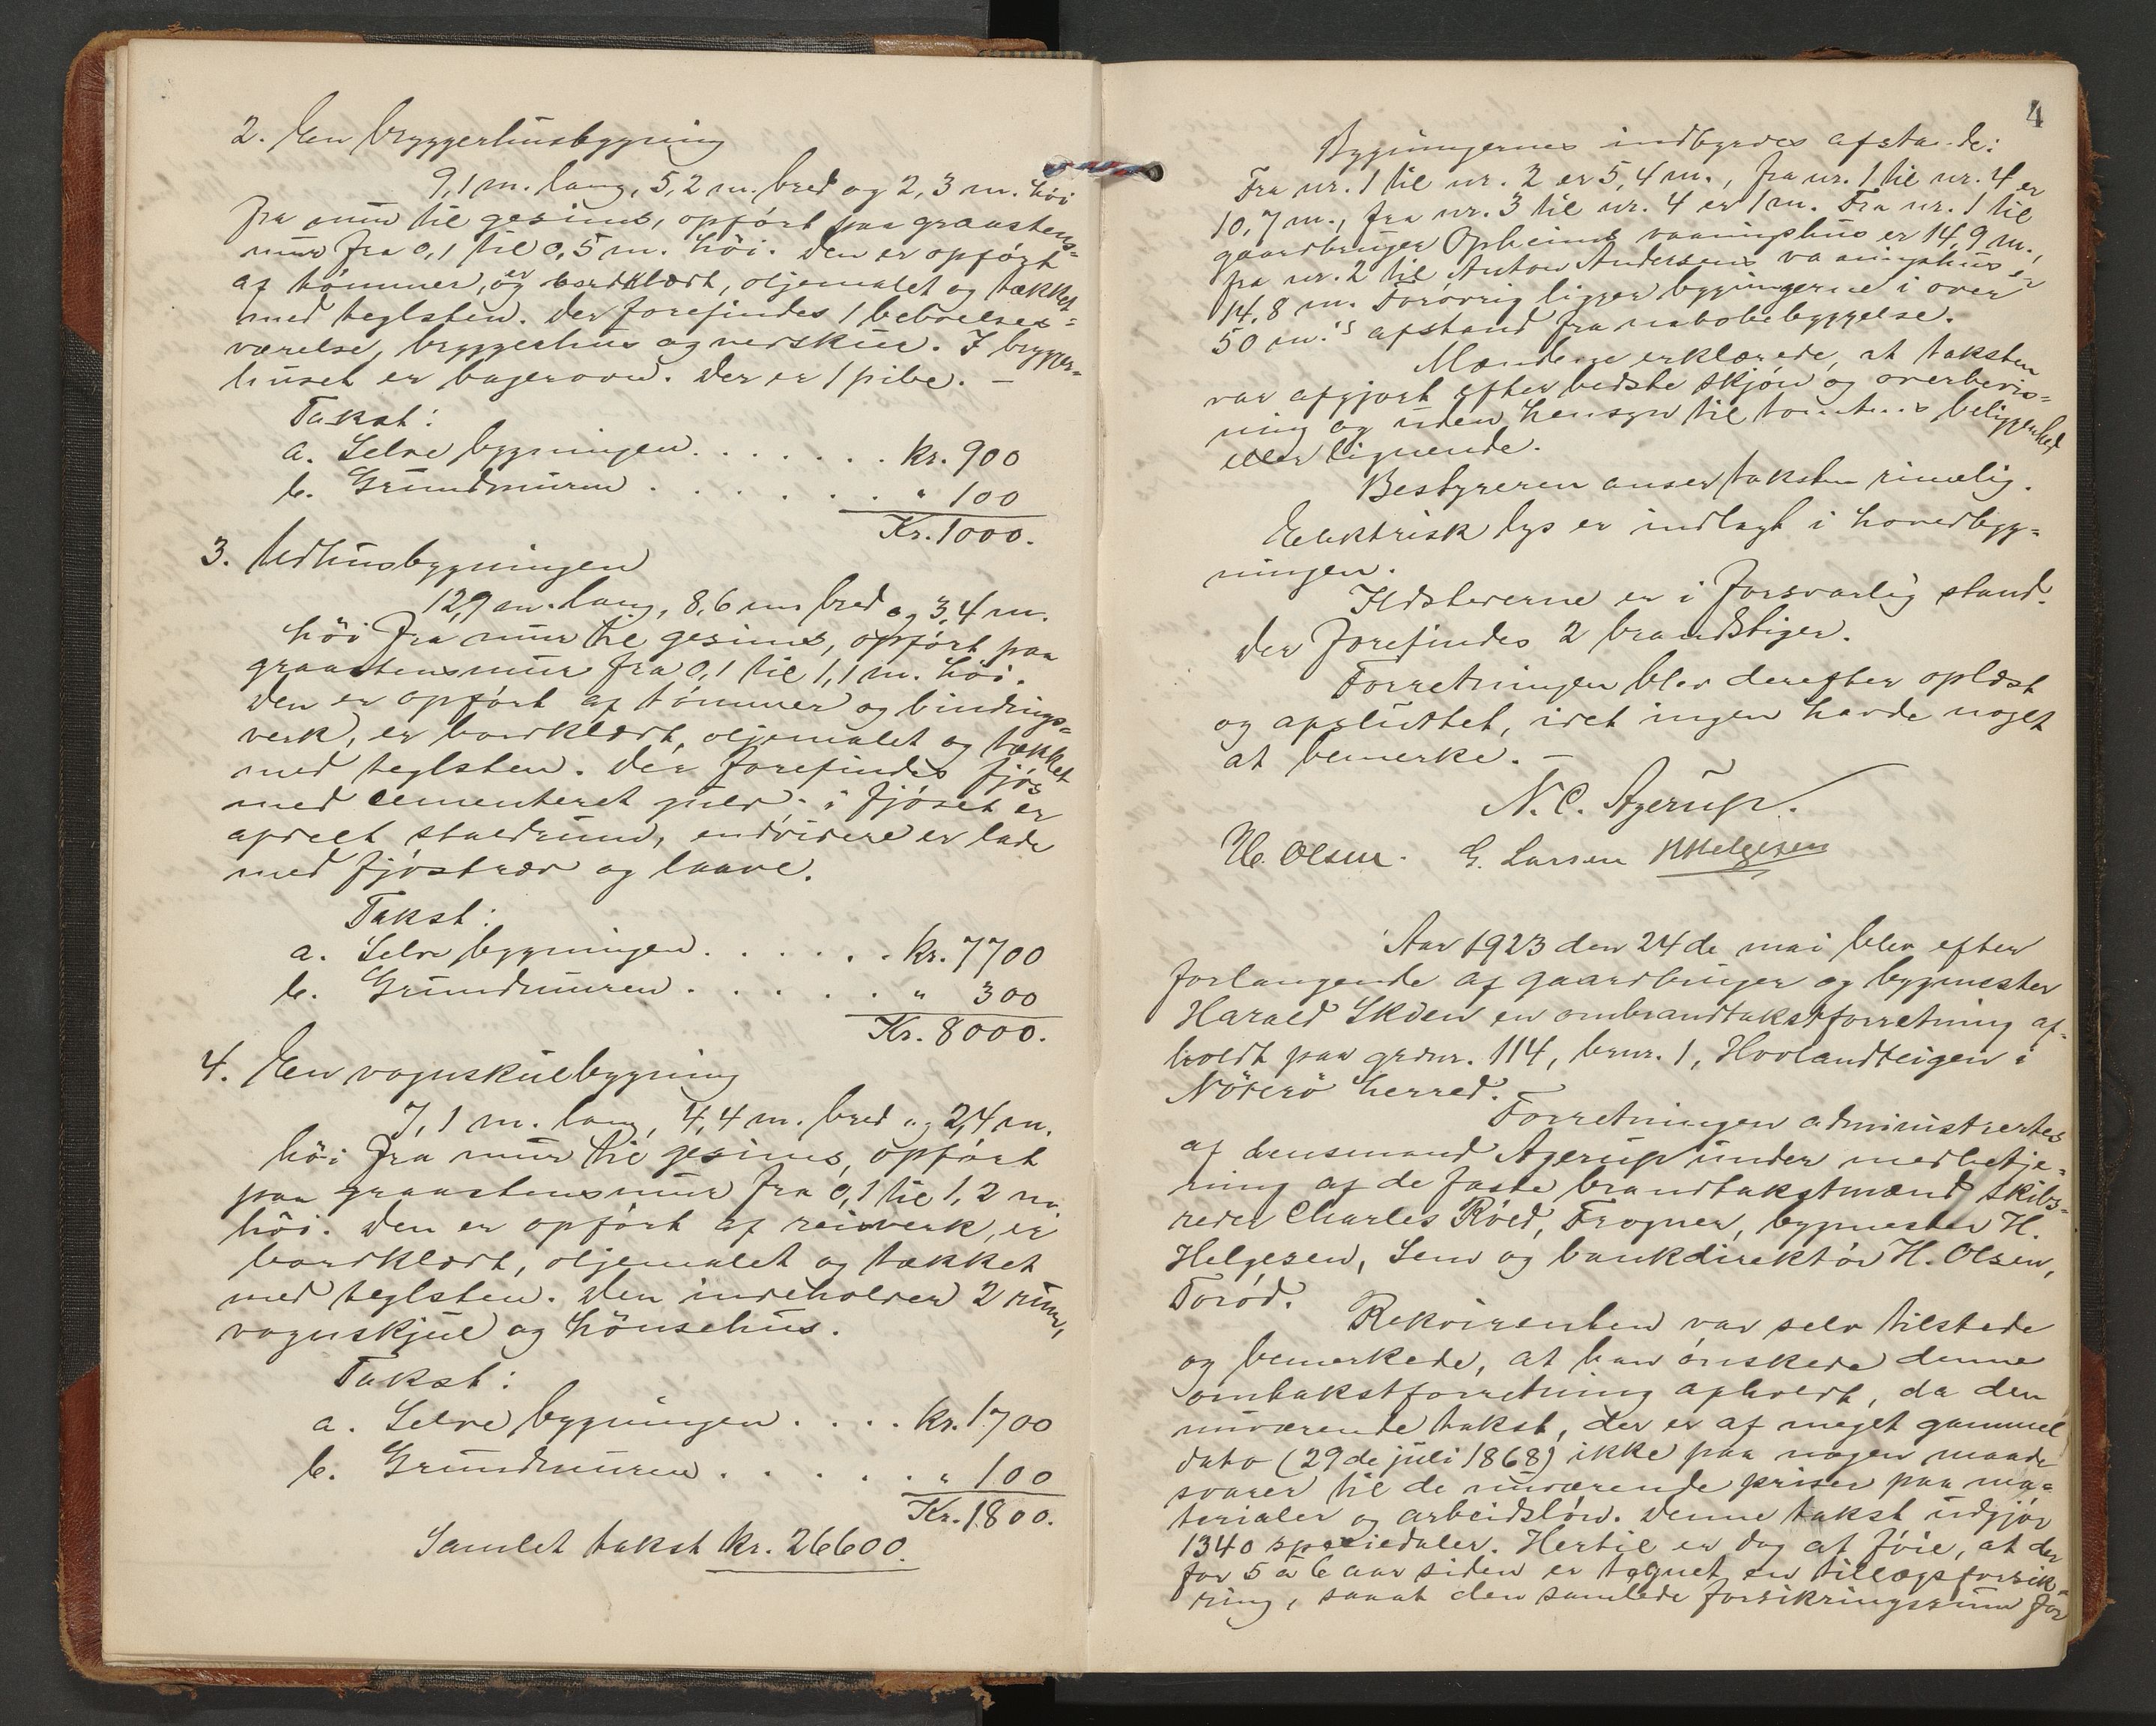 2. En bryggerhusbygning
9,1 m. lang, 5,2 m. bred og 2,3 m. höi
fra mur til gesims, opfört paa graastens=
mur fra 0,1 til 0,5 m. höi. Den er opfört
af tömmer, og er bordklædt, oljemalet og tækket
med teglsten. Der forefindes 1 beboelses=
værelse, bryggerhus og vedskur. I brygger=
huset er bagerovn. Der er 1 pibe. —
Takst:
a. Selve bygningen . . . . . . . kr. 900
b. Grundmuren . . . . . . . " 100
Kr. 1000.
3. Udhusbygningen
12,9 m. lang, 8,6 m bred og 3,4 m.
höi fra mur til gesims, opfört paa
graastensmur fra 0,1 til 1,1 m. höi.
Den er opfört af tömmer og bindings=
verk, er bordklædt, oljemalet og tækket
med teglsten. Der forefindes fjös
med cementeret gulv; i fjöset er
apdelt staldrum, endvidere er lade
med fjöstrev og laave.
Takst:
a. Selve bygningen . . . . . . kr. 7700
b. Grundmuren . . . . . " 300
Kr. 8000.
4. En vognskulbygning
7,1 m. lang, 4,4 m. bred og 2,4 m.
höi fra mur til gesims, opfört
paa graastensmur fra 0,1 til 1,2 m.
höi. Den er opfört af reisverk, er
bordklædt, oljemalet og tækket
med teglsten. Den indeholder 2 rum,
vognskjul og hönsehus.
Takst:
a. Selve bygningen . . . . kr. 1700
b. Grundmuren . . . . . . " 100
Kr. 1800.
Samlet takst kr. 26600.
4
Bygningernes indbyrdes afstande:
Fra nr. 1 til nr. 2 er 5,4 m., fra nr. 1 til nr. 4 er
10,7 m., fra nr. 3 til nr. 4 er 1 m. Fra nr. 1 til
gaardbruger Opheims vaaningshus er 14,9 m.,
fra nr. 2 til Anton Andersens vaaningshus er
14,8 m. Forövrig ligger bygningerne i over
50 m.'s afstand fra nabobebyggelse.
Mændene erklærede, at taksten
var afgjort efter bedste skjön og overbevis=
ning og uden hensyn til tomtens beliggenhed
eller lignende.
Bestyreren anser taksten rimelig.
Elektrisk lys er indlagt i hovedbyg=
ningen.
Ildstederne er i forsvarlig stand.
Der forefindes 2 brandstiger.
Forretningen blev derefter oplæst
og apsluttet, idet ingen havde noget
at bemerke. —
N. C. Agerup.
H. Olsen. G. Larsen HHelgesen
Aar 1923 den 24de mai blev efter
forlangende af gaardbruger og bygmester
Harald Skoen en ombrandtakstforretning af=
holdt paa grdnr. 114, brnr. 1, Hovlandteigen i
Nöterö herred.
Forretningen administrertes
af lensmand Agerup under medbetje=
ning af de faste brandtakstmænd skibs=
reder Charles Röed, Trogner, bygmester H.
Helgesen, Sem og bankdirektör H. Olsen,
Toröd.
Rekvirenten var selv tilstede
og bemerkede, at han önskede denne
omtakstforretning apholdt, da den
nuværende takst, der er af meget gammel
dato (29de juli 1868) ikke paa nogen maade
svarer til de nuværende priser paa ma=
terialer og arbeidslön. Denne takst udgjör
1340 speciedaler. Hertil er dog at föie, at der
for 5 à 6 aar siden er tegnet en tillægsforsik=
ring, saaat den samlede forsikringssum for